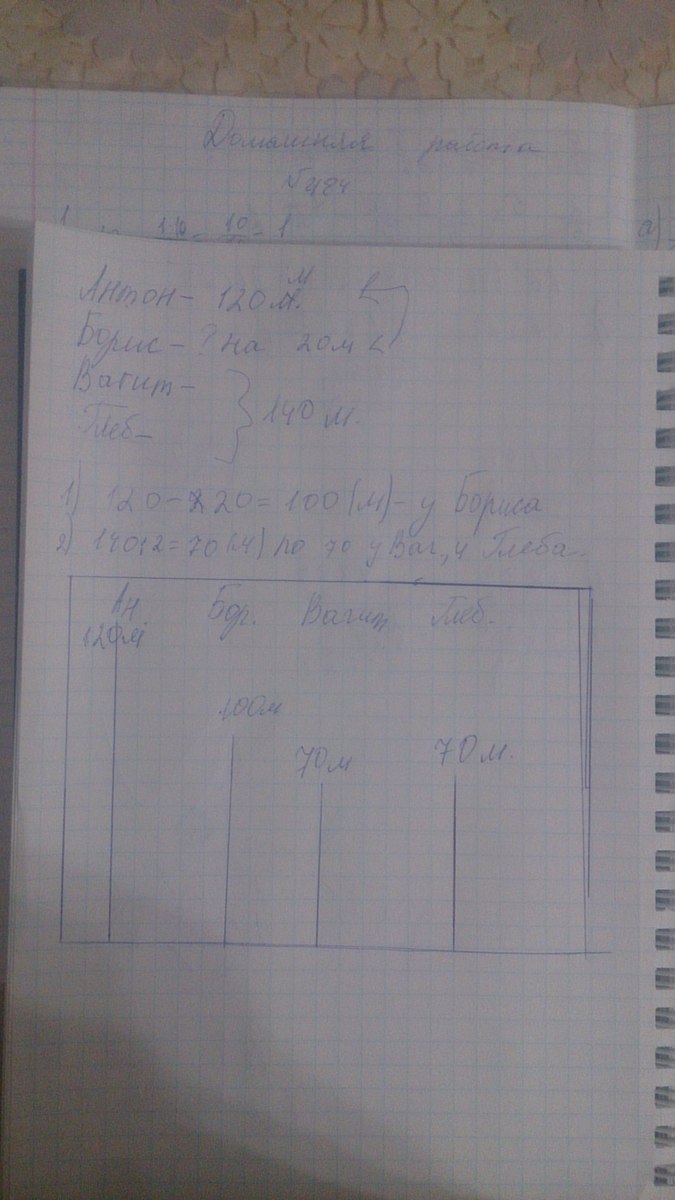 Домашняя работа
а)
Антон - 120 м.
Борис - ? на 20м <
Вагит -
Глеб -
140 м.
1) 120-20=100(м)- у Бориса
2) 140:2=70(м) по 70 у Ваг, и Глеба.
Ан Бор. Вагит Глеб.
120м
100м
70м 70м.